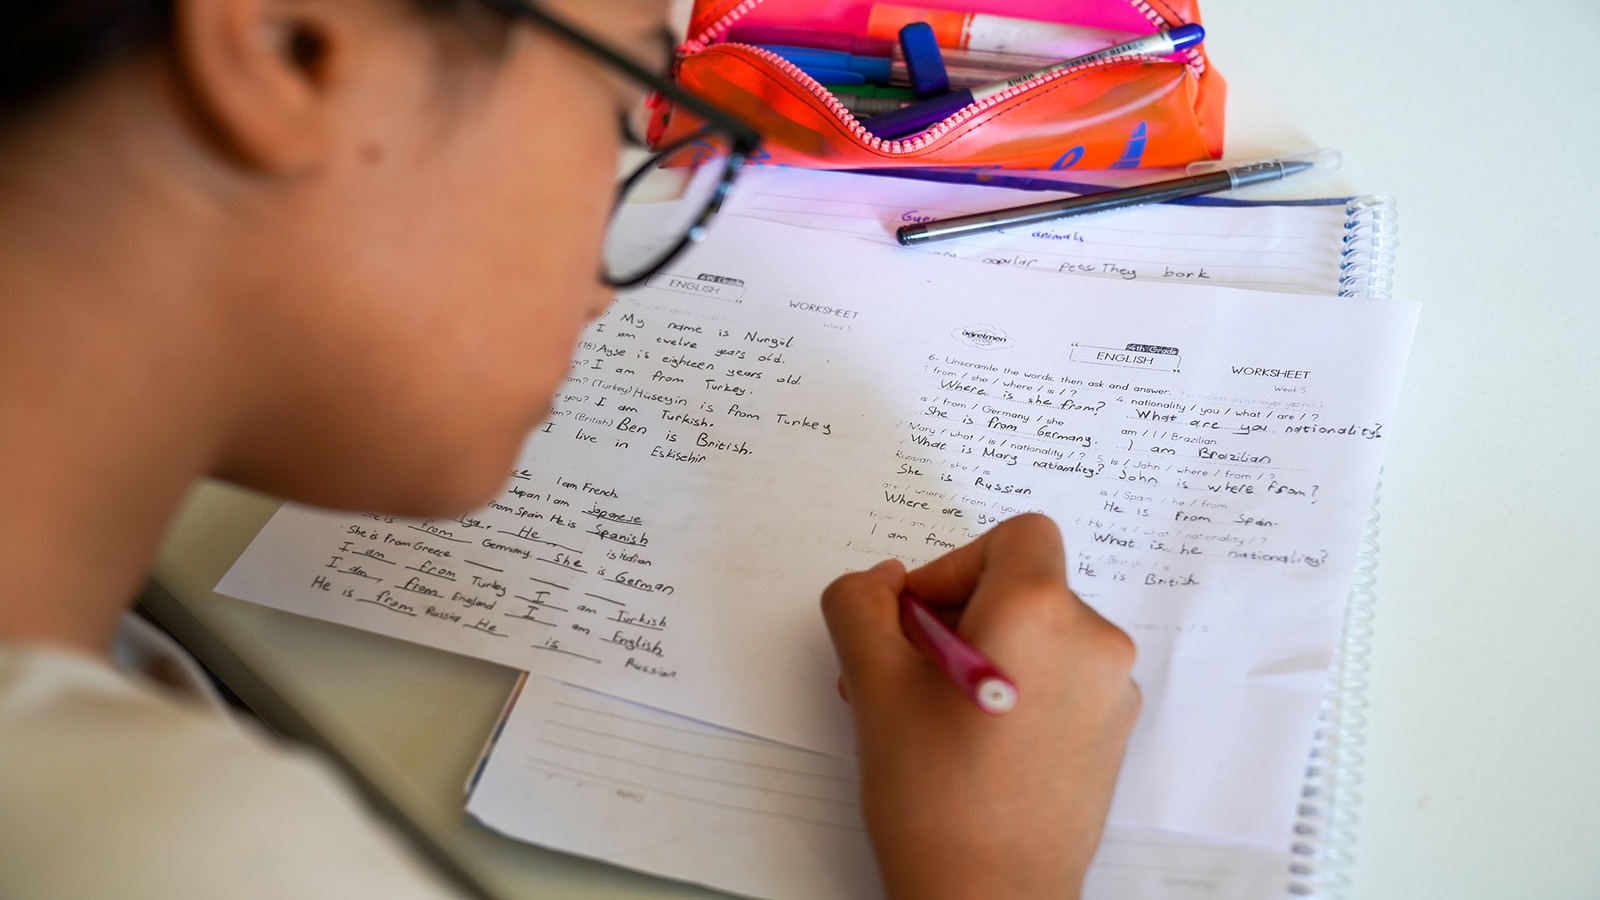 animals
popular pets. They bork
4th Grade
ENGLISH
WORKSHEET
Week 5
My name is Nurgül.
I am twelve years old.
(18) Ayşe is eighteen years old.
I am from Turkey.
(Turkey) Hüseyin is from Turkey
you? I am Turkish.
(British) Ben is British.
I live in Eskişehir
I am French.
Japan I am Japanese
from Spain He is Spanish
He is italian
She is from Germany. She is German
She is from Greece
I am from Turkey I am Turkish
I am from England I am English
He is from Russia He is Russian
öğretmen
4th Grade
ENGLISH
WORKSHEET
Week 5
6- Unscramble the words, then ask and answer.
from / she / where / is / ?
Where is she from?
is / from / Germany / she
She is from Germany.
2. Mary / what / is / nationality / ?
What is Mary nationality?
Russian / she / is
She is Russian
are / where / from / you / ?
Where are you
from / am / I /
I am from
4. nationality / you / what / are / ?
What are you nationality?
am / I / Brazilian.
I am Brazilian
5. is / John / where / from / ?
John is where from?
is / Spain / he / from
He is from Spain.
He / is / what / nationality / ?
What is he nationality?
he / British / is
He is British